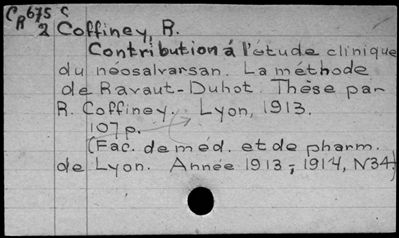 CR 675 C
2 Coffiney, R.
Contribution á l'étude clinique
du néosalvarsan. La méthode
de Ravaut-Duhot. Thèse par
R. Coffiney. Lyon, 1913.
107p.
(Fac. de méd. et de pharm.
de Lyon. Année 1913-1914, N34)